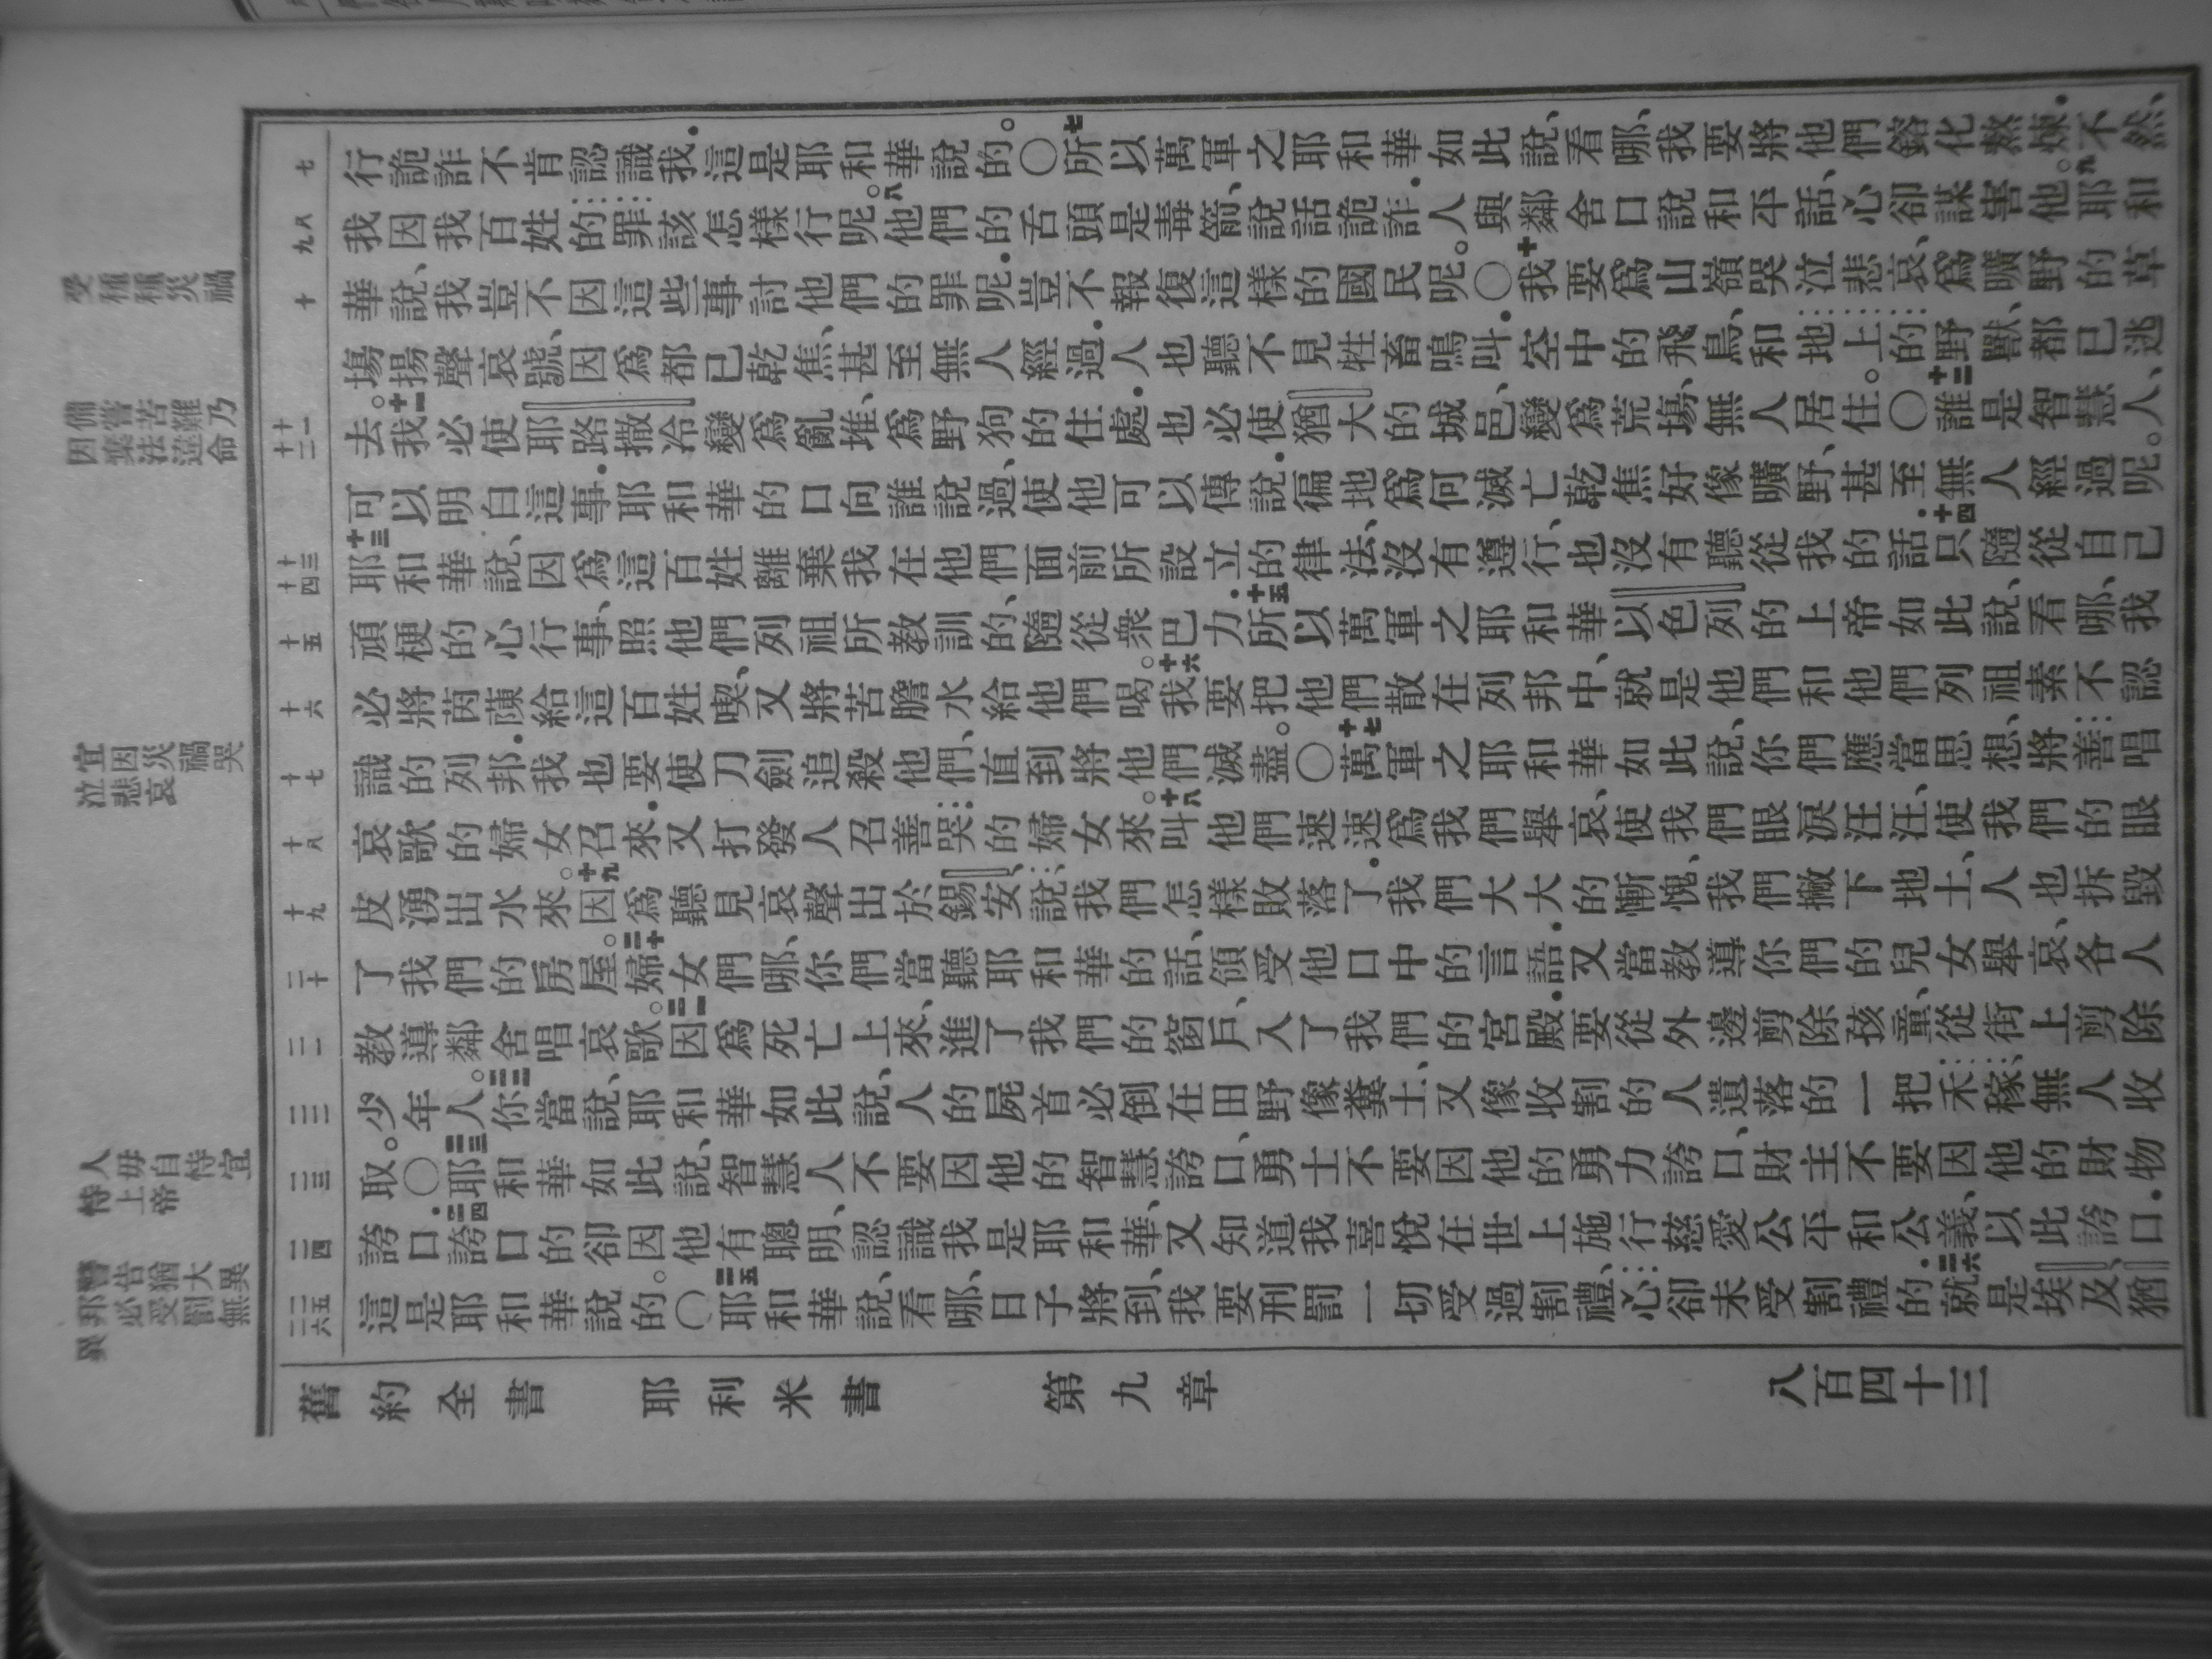 受種種災禍
備嘗苦難乃
因棄法違命
宜因災禍哭
泣悲哀
人毋自恃宜
恃上帝
警告猶大異
邦必受罰無
異
七
八
九
十
十一
十二
十三
十四
十五
十六
十七
十八
十九
二十
二一
二二
二三
二四
二五
二六
行詭詐不肯認識我．這是耶和華說的。〇七所以萬軍之耶和華如此說、看哪、我要將他們鎔化熬煉．不然、
我因我百姓的罪該怎樣行呢。八他們的舌頭是毒箭、說話詭詐．人與鄰舍口說和平話、心卻謀害他。九耶和
華說、我豈不因這些事討他們的罪呢．豈不報復這樣的國民呢。〇十我要爲山嶺哭泣悲哀、爲曠野的草
塲揚聲哀號、因爲都已乾焦、甚至無人經過．人也聽不見牲畜鳴叫．空中的飛鳥、和地上的野獸、都已逃
去。十一我必使耶路撒冷變爲亂堆、爲野狗的住處．也必使猶大的城邑、變爲荒塲、無人居住。〇十二誰是智慧人、
可以明白這事．耶和華的口向誰說過、使他可以傳說．徧地爲何滅亡乾焦好像曠野、甚至無人經過呢。
十三耶和華說、因爲這百姓離棄我在他們面前所設立的律法、沒有遵行、也沒有聽從我的話．十四只隨從自己
頑梗的心行事、照他們列祖所教訓的、隨從衆巴力．十五所以萬軍之耶和華以色列的上帝如此說、看哪、我
必將茵蔯給這百姓喫、又將苦膽水給他們喝。十六我要把他們散在列邦中、就是他們和他們列祖素不認
識的列邦．我也要使刀劍追殺他們、直到將他們滅盡。〇十七萬軍之耶和華如此說、你們應當思想、將善唱
哀歌的婦女召來．又打發人召善哭的婦女來．十八叫他們速速爲我們舉哀、使我們眼淚汪汪、使我們的眼
皮湧出水來。十九因爲聽見哀聲出於錫安、說、我們怎樣敗落了．我們大大的慚愧、我們撇下地土、人也拆毀
了我們的房屋。二十婦女們哪、你們當聽耶和華的話、領受他口中的言語．又當教導你們的兒女舉哀、各人
教導鄰舍唱哀歌。二一因爲死亡上來、進了我們的窗戶、入了我們的宮殿．要從外邊剪除孩童、從街上剪除
少年人。二二你當說、耶和華如此說、人的屍首必倒在田野像糞土、又像收割的人遺落的一把禾稼、無人收
取。〇二三耶和華如此說、智慧人不要因他的智慧誇口、勇士不要因他的勇力誇口、財主不要因他的財物
誇口．二四誇口的卻因他有聰明、認識我是耶和華、又知道我喜悅在世上施行慈愛公平和公義、以此誇口．
這是耶和華說的。〇二五耶和華說、看哪、日子將到、我要刑罰一切受過割禮、心卻未受割禮的．二六就是埃及猶
舊約全書　耶利米書　第九章　八百四十三